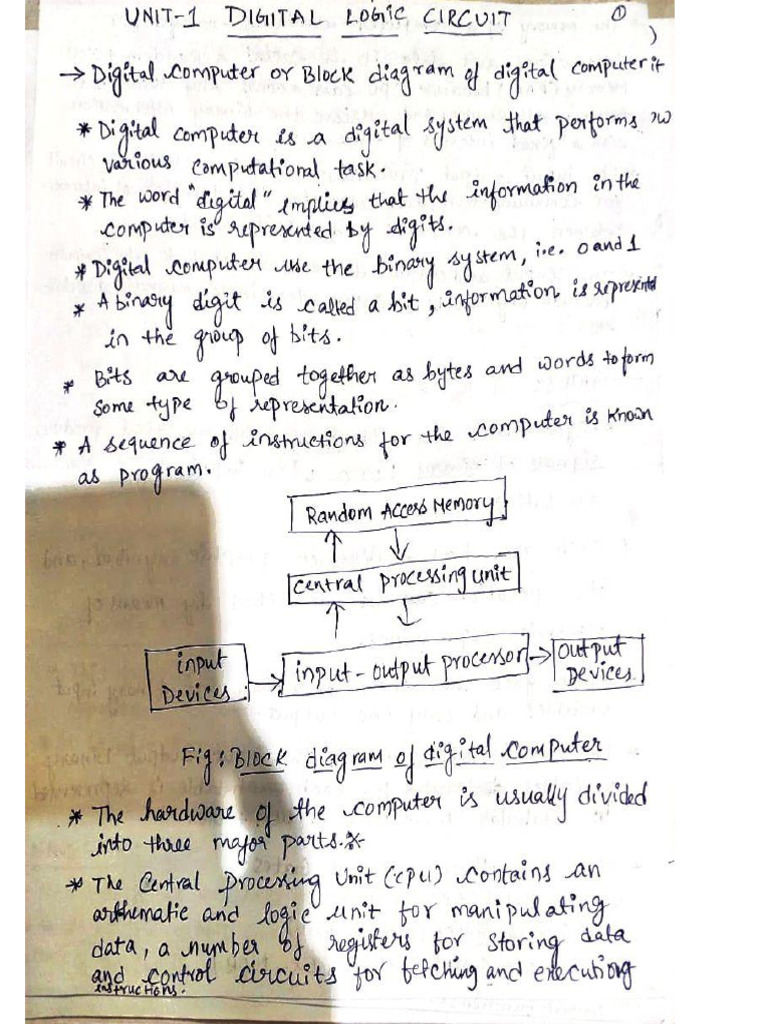 UNIT-1 DIGITAL LOGIC CIRCUIT ①
→ Digital Computer or Block diagram of digital computer it
* Digital computer is a digital system that performs
various computational task.
* The word "digital" implies that the information in the
computer is represented by digits.
* Digital computer use the binary system, i.e. 0 and 1
* A binary digit is called a bit, information is represented
in the group of bits.
* Bits are grouped together as bytes and words to form
some type of representation.
* A sequence of instructions for the computer is known
as program.
Random Access Memory
Central processing unit
input Devices
input-output processor
output Devices
Fig: Block diagram of digital computer
* The hardware of the computer is usually divided
into three major parts.
* The Central Processing Unit (CPU) contains an
arthematic and logic unit for manipulating
data, a number of registers for storing data
and control circuits for fetching and executiong
instructions.